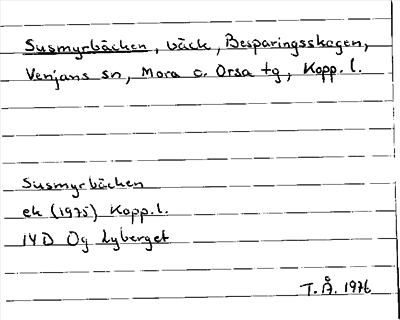 Susmyrbäcken, bäck, Besparingsskogen,
Venjans sn, Mora o. Orsa tg, Kopp. l.
Susmyrbäcken
ek (1975) Kopp. l.
14D 0g Lyberget
T. Å. 1976